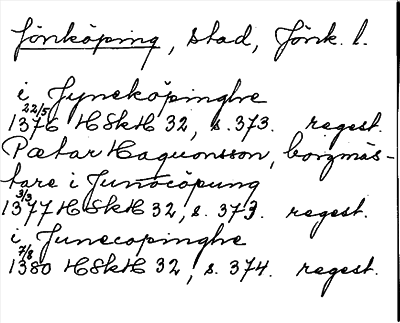 Jönköping, stad, Jönk. l.
i Jyneköpinghe
22/5
1376 HSkH 32, s. 373. regest.
Pætar Haquonsson, borgmäs-
tare i Junöcöpung
3/3
1377 HSkH 32, s. 373. regest.
i Junecopinghe
7/8
1380 HSkH 32, s. 374. regest.